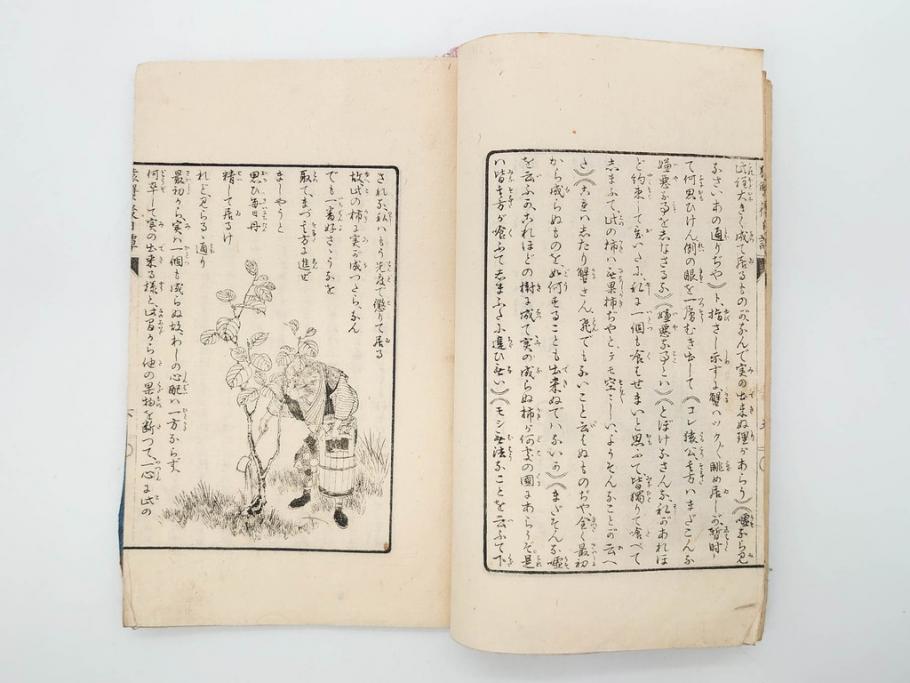 此程大きく成て居るものが、なんで実の出来ぬ理があらう）（嘘なら見
なさい、あの通りぢや）ト、指さし示すを、蟹ハツク〲眺め居しが、暫時し
て何思ひけん、例の眼を一層むき出して（コレ猿公、其方ハまだこんな
嫌悪な事を志なさるな）（嫌悪な事とハ）（とぼけなさんな、私があれほ
ど約束して置いたに、私に一個も食もせまいと思ふて、皆獨りで食べて
志まふて、此の柿ハ無果柿ぢやと、テモ空々しい、ようそんなことが云へ
さ）（これハ志たり蟹さん、飛でもないこと云もぬものぢや、全く最初
から成らぬものを、如何することも出来ぬでハないか）（まだそんな嘘
を云ふか、これほどの樹に成て実の成らぬ柿が何處の國にあらうぞ、是
ハ皆其方が食ふて志まふたに違ひ無い）（モシ無法なことを云ふて下
されな、私ハもう先度で懲りて居る
故、此の柿に実が成つたら、なん
でも一番好さうなを
取て、まづ其方に進ぜ
ましやうと
思ひ、毎日丹
精して居るけ
れど、見らるゝ通り
最初から、実ハ一個も成らぬ故、わしの心配ハ一方ならず、
何卒して実の出来る様と、此間から他の果物を断つて、一心に此の